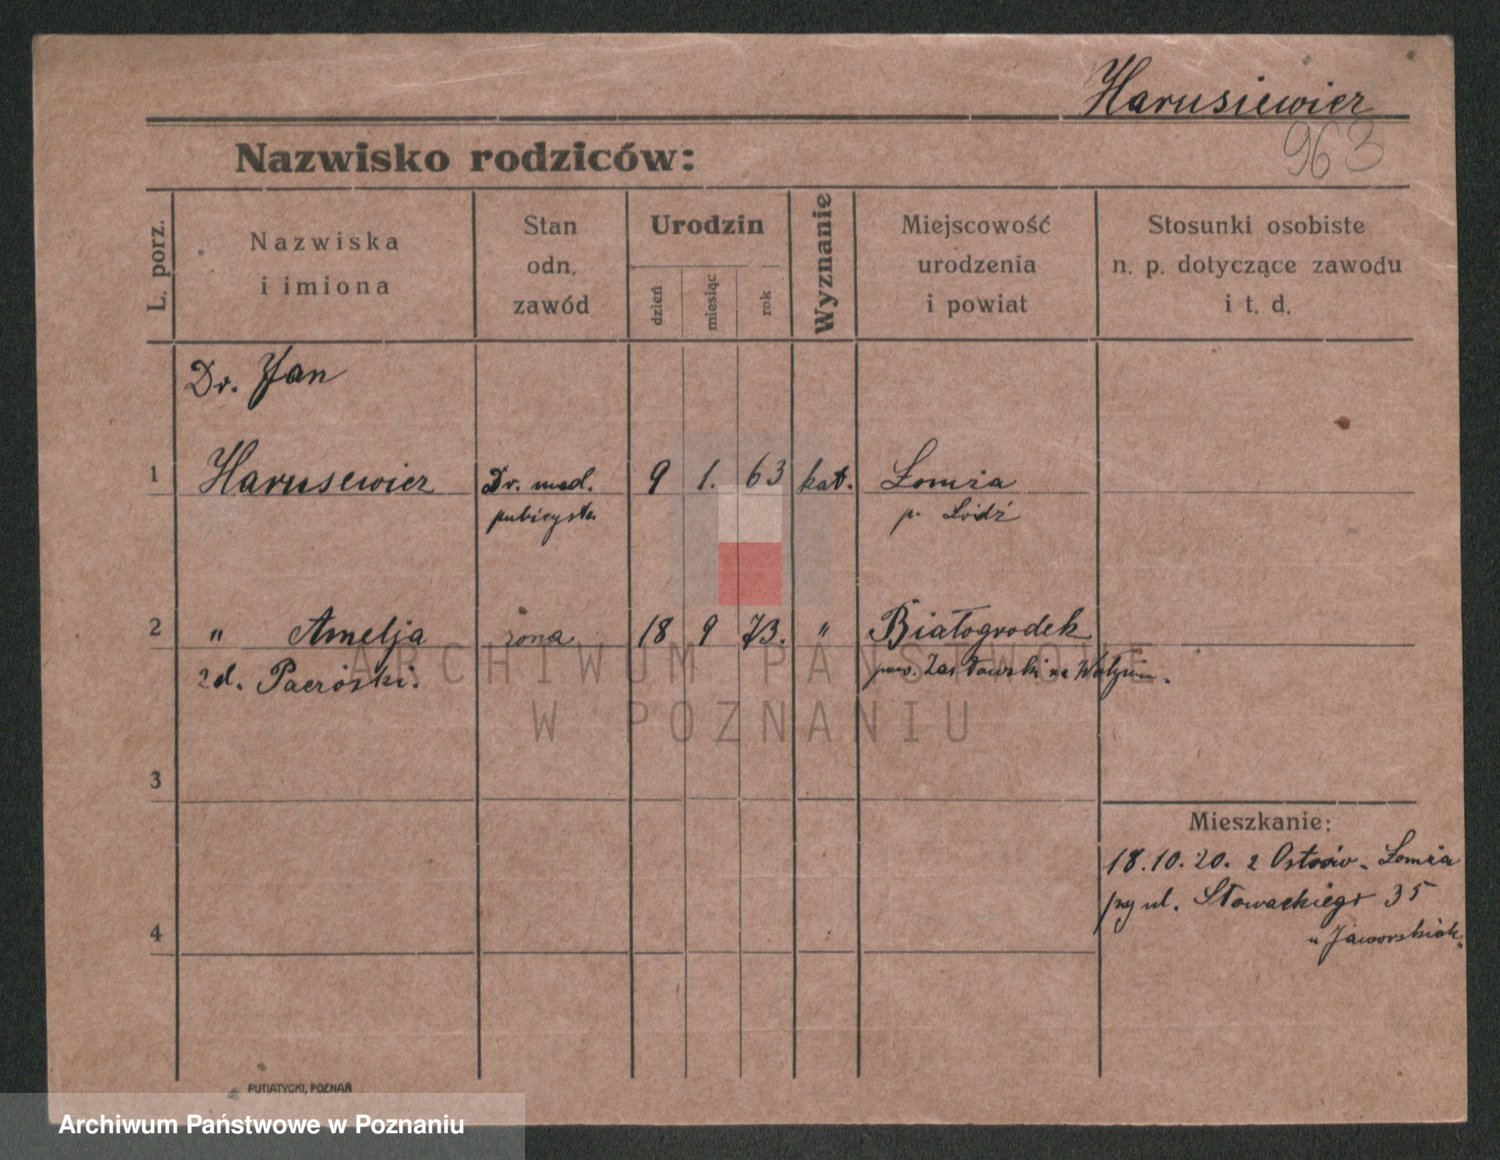 Harusiewicz
963
Nazwisko rodziców:
L. porz.
Nazwiska
i imiona
Stan
odn.
zawód
Urodzin
dzień
miesiąc
rok
Wyznanie
Miejscowość
urodzenia
i powiat
Stosunki osobiste
n. p. dotyczące zawodu
i t. d.
Dr. Jan
1 Harusewicz Dr. med. 9 1. 63 kat. Łomża
p. Łódź
2 " Amelja żona 18 9 73. " Białogrodek
zd. pow. Zasławski na Wołyniu.
ARCHIWUM PAŃSTWOWE
W POZNANIU
3
Mieszkanie:
18.10.20. z Ostrów - Łomża
przy ul. Słowackiego 35
4
u Jaworskich.
PUTIATYCKI, POZNAŃ
Archiwum Państwowe w Poznaniu